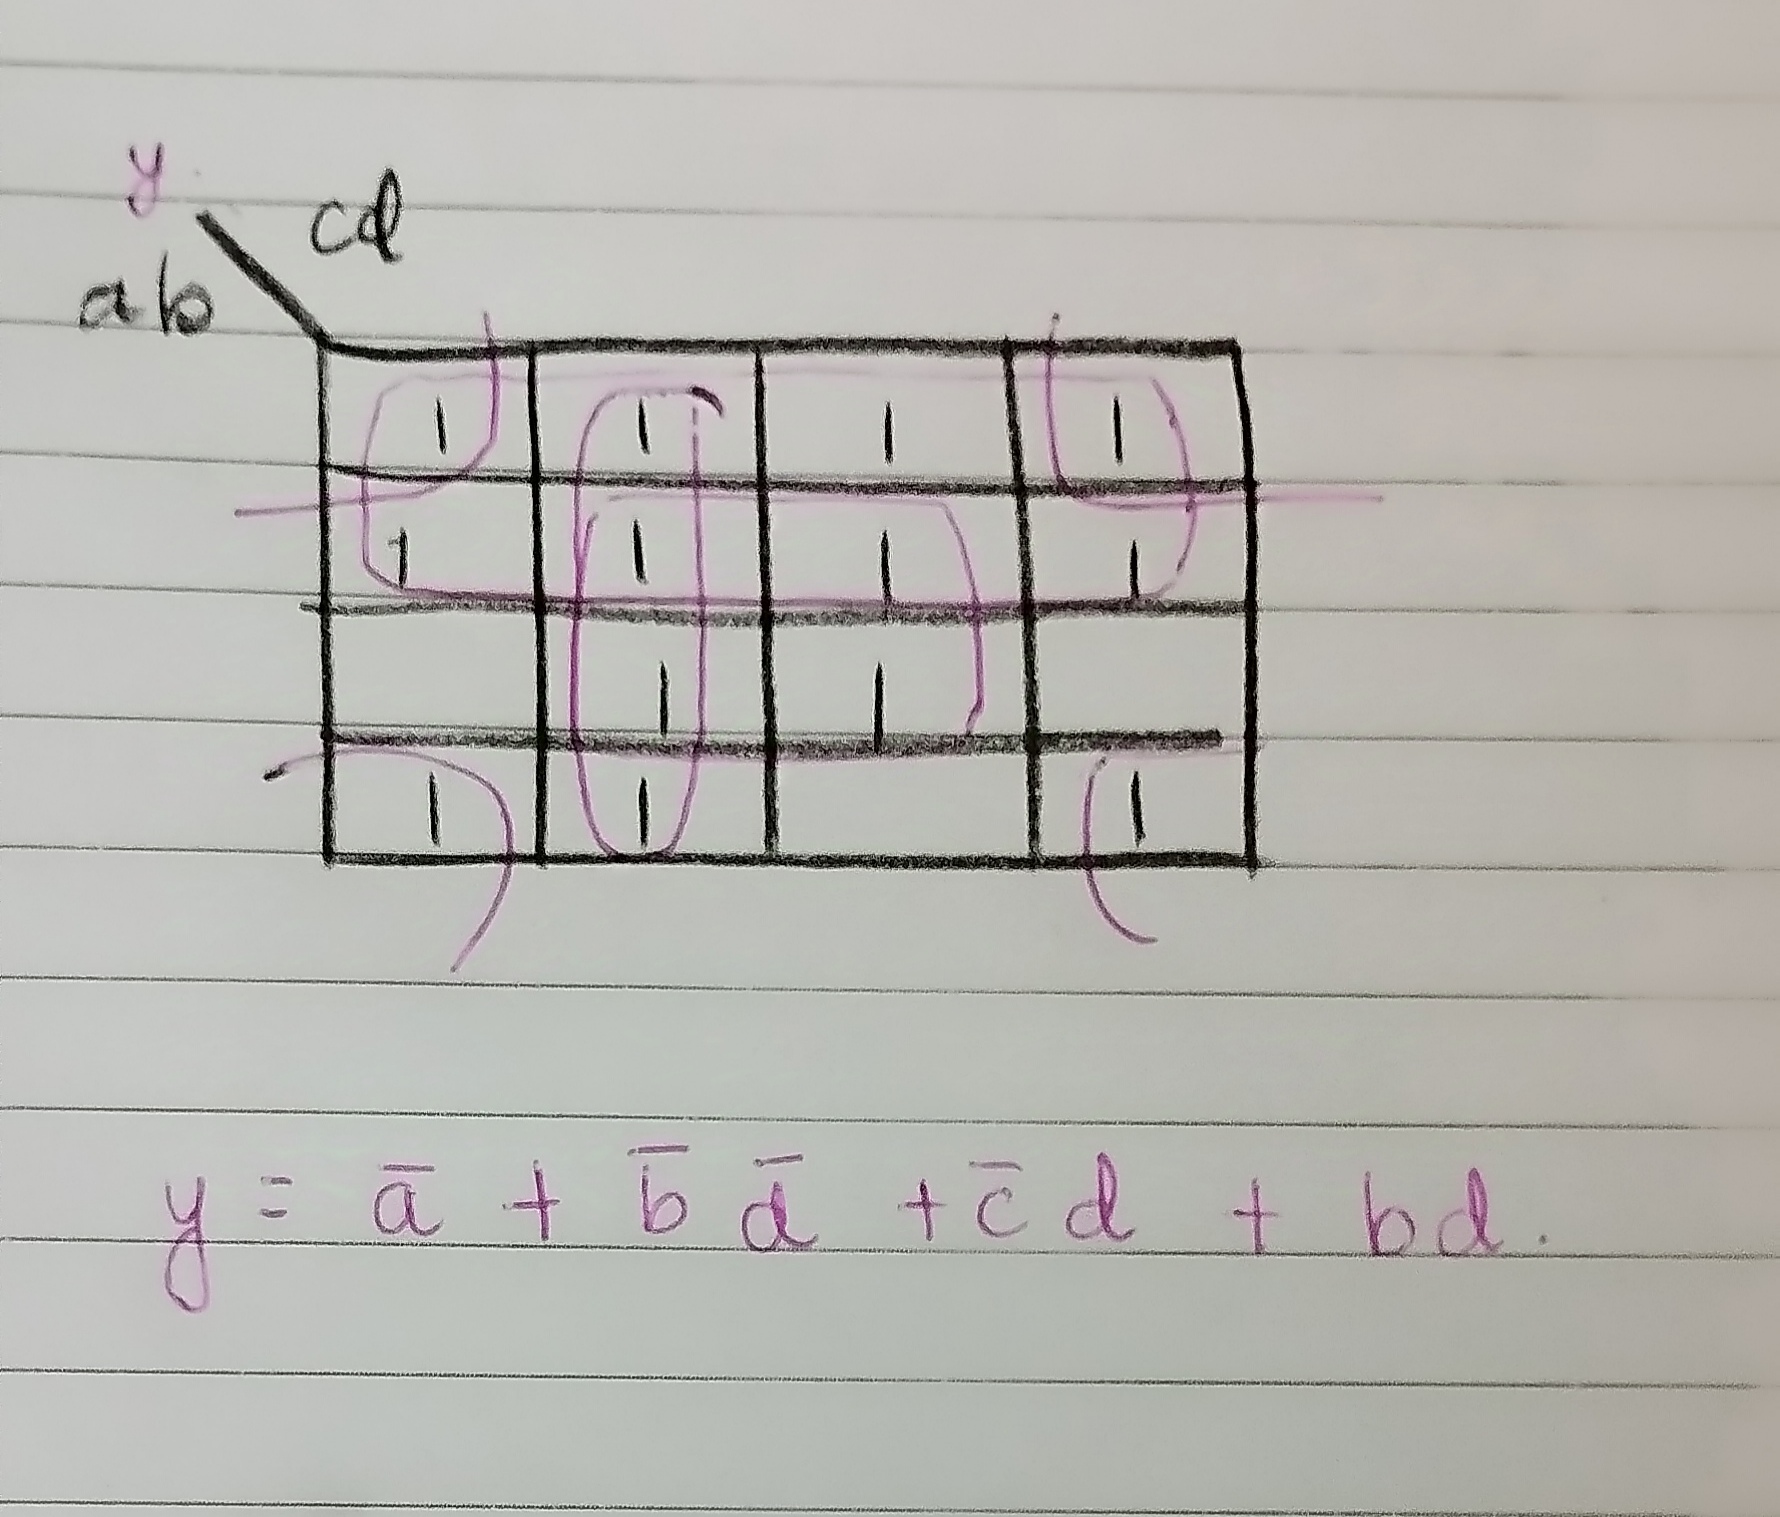 y
cd
ab
1 1 1 1
1 1 1 1
1 1
1 1 1
y = a̅ + b̅ d̅ + c̅ d + bd.